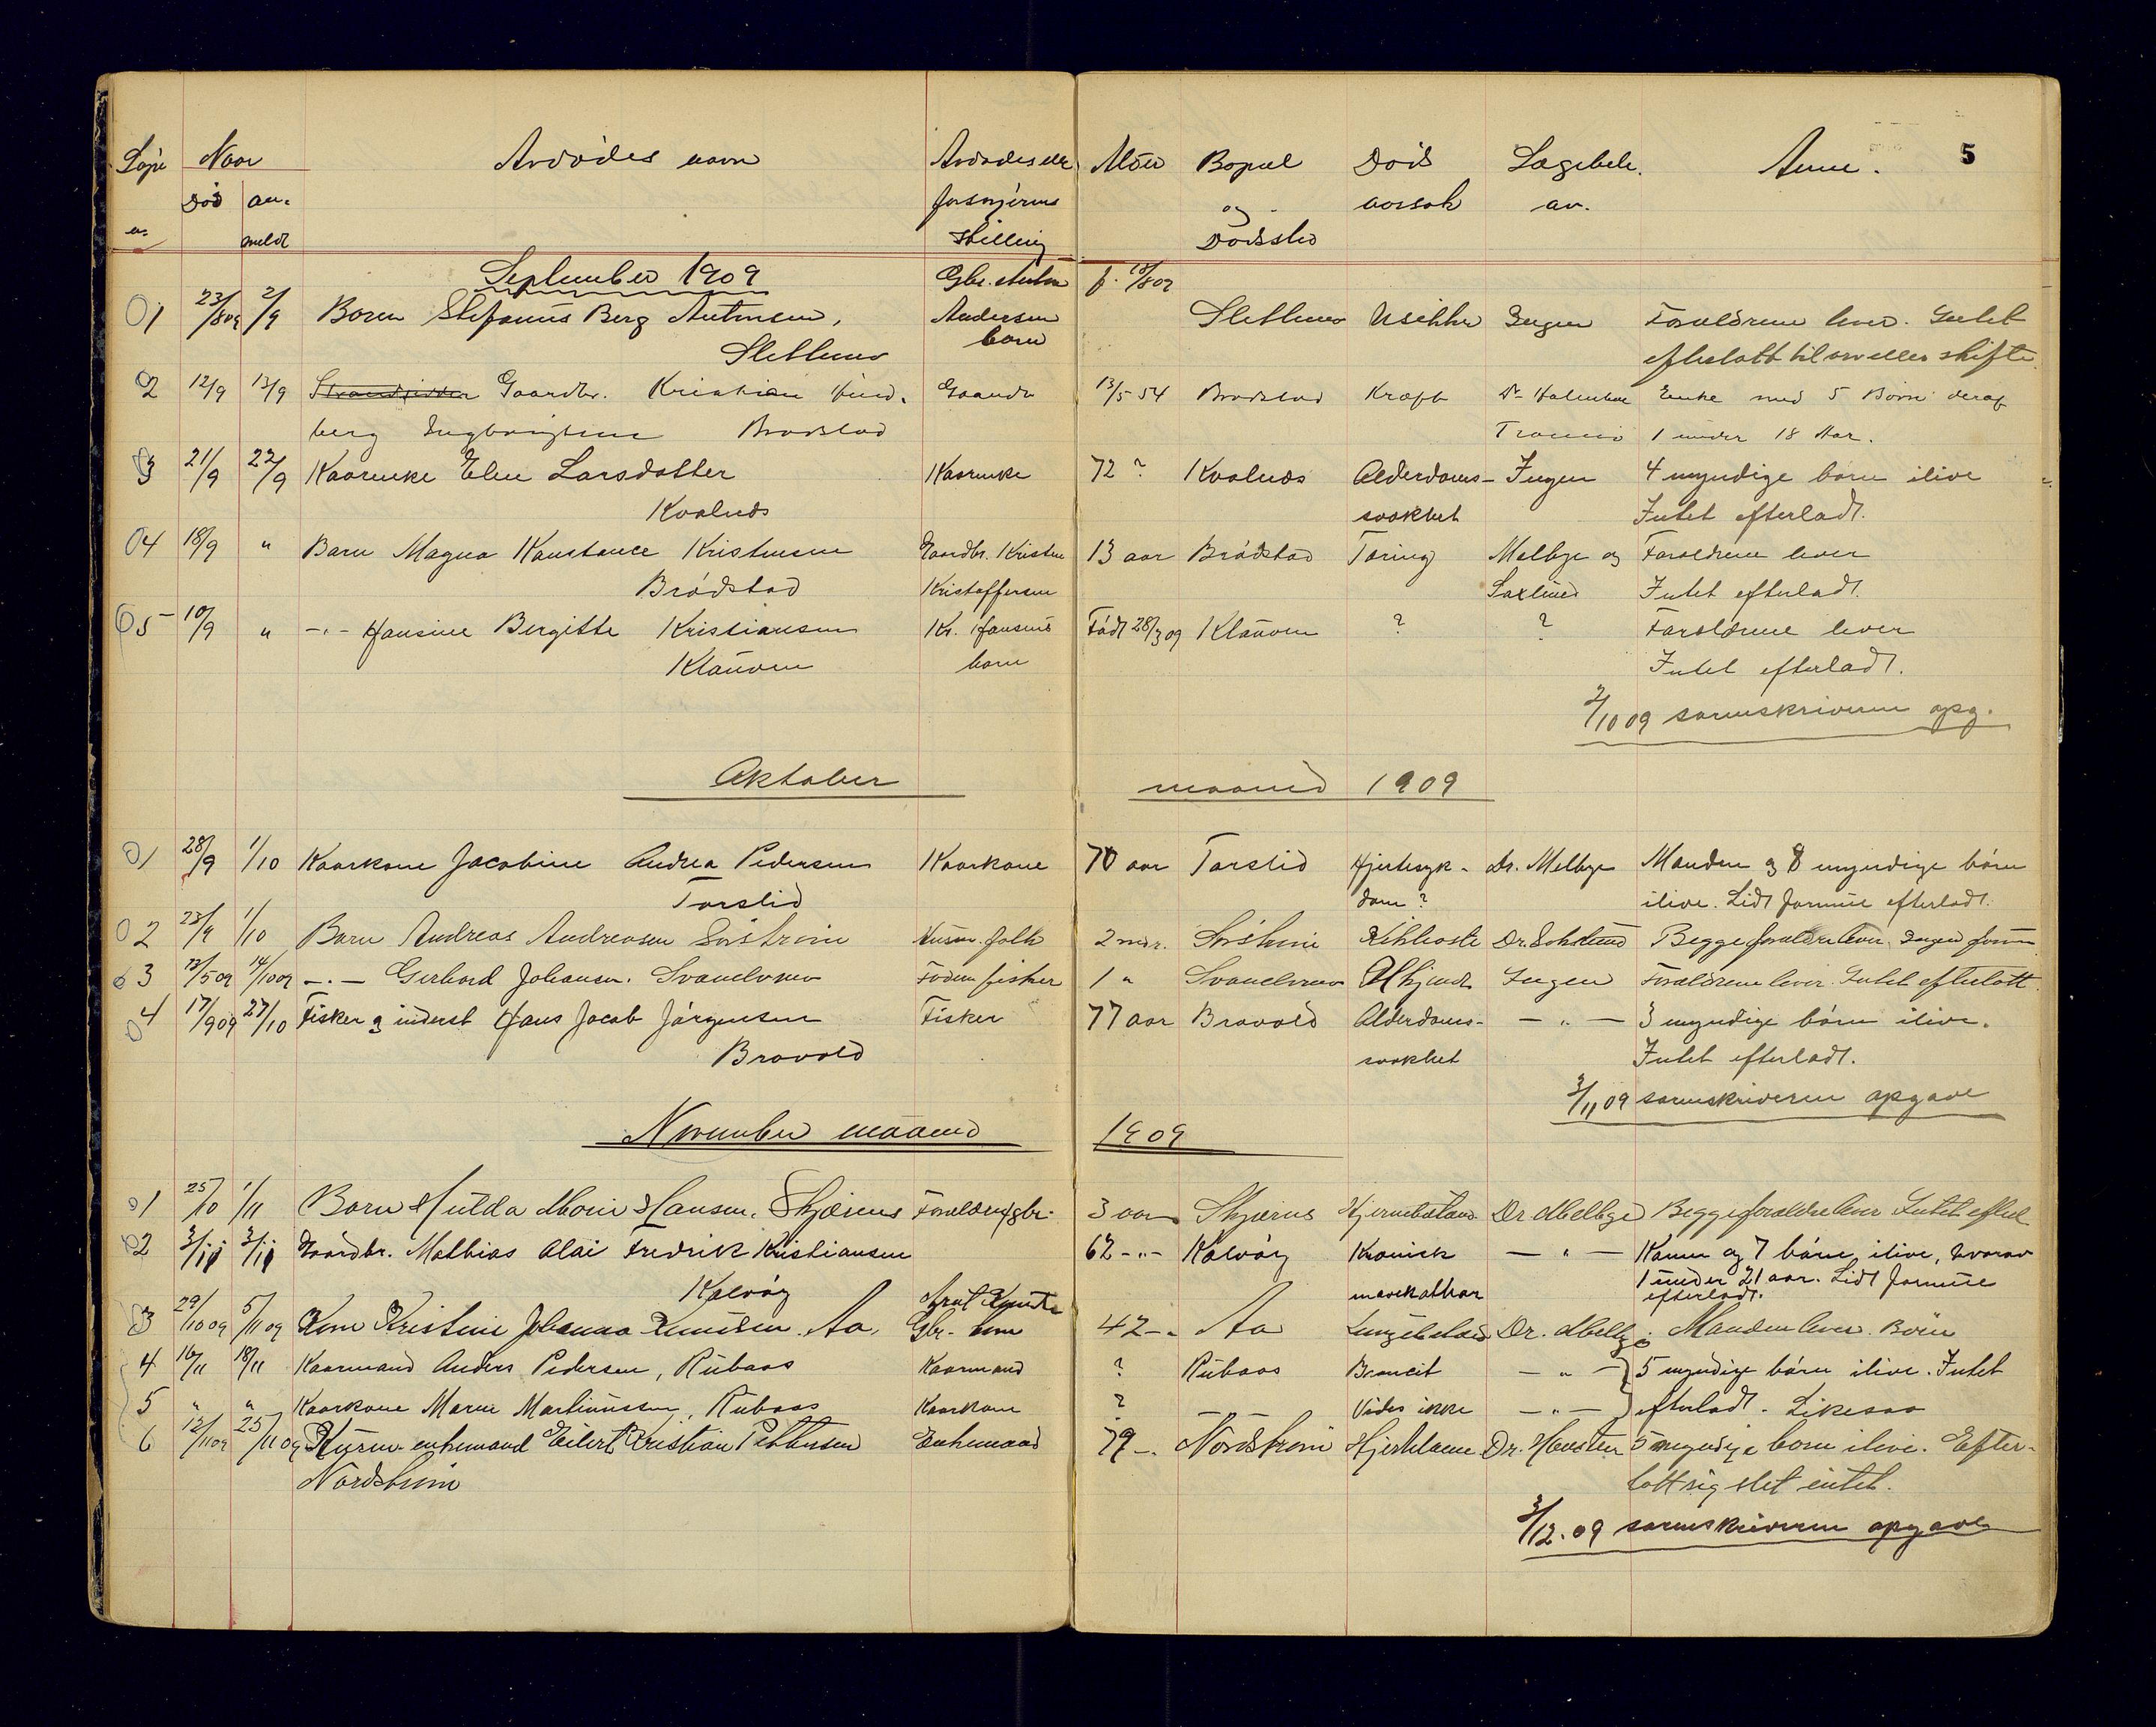 5
Løpe Naar Avdødes navn Avdødes eller Alder Bopæl Døds Lægebeh. Anm.
Død an- forsørgeres og aarsak av.
meldt stilling Dødssted
September 1909 Gbr. f. 18/8 09
1 23/8 09 2/9 Barn Stefanus Berg Antonsen, Andersen Slettnes Usikker Ingen Forældrene lever. Intet
Slettnes barn efterlatt til arv eller skifte.
2 12/9 13/9 Gaardbr. Kristian Lind- Gaardbr 13/5 54 Brødstad Kræft Dr. Enke med 5 Børn deraf
berg Ingbrigtsen Brødstad Tromsø 1 under 18 Aar.
3 21/9 22/9 Kaarenke Elen Larsdatter Kaarenke 72 ? Kvalnes Alderdoms- Ingen 4 myndige børn ilive
Kvalnes svakhet Intet efterladt.
4 18/9 " Barn Magna Konstance Kristensen Gaardbr. Kristen 13 aar Brødstad Tæring Melbye og Forældrene lever
Brødstad Kristoffersen Intet efterladt.
5 10/9 " -"- Hansine Bergitte Kristiansen Kr. Hansens Født 28/3 09 Klauven ? ? Forældrene lever
Klauven barn Intet efterladt.
2/10 09 sorenskriveren opg.
Oktober maaned 1909
1 28/9 1/10 Kaarkone Jacobine Andrea Pedersen Kaarkone 70 aar Torslid Hjertesyk- Dr. Melbye Manden og 8 myndige børn
Torslid dom ? ilive. Lidt formue efterladt.
2 23/9 1/10 Barn Andreas Andreasen Sørstrøm Husm. folk 2 mdr. Sørstrøm Kikhoste Dr. Begge forældre lever. Ingen form
3 13/5 09 14/10 09 -"- Gerhard Johansen. Svanelvmo Faderen fisker 1 " Svanelvmo Ukjendt Ingen Forældrene lever. Intet efterlatt.
4 17/9 09 27/10 Fisker og inderst Hans Jacob Jørgensen Fisker 77 aar Bravold Alderdoms- -"- 3 myndige børn ilive.
Bravold svakhet Intet efterladt.
3/11 09 sorenskriveren opgave
November maaned 1909
1 25/10 1/11 Barn Hulda Marie Hansen. Skjærnes Forældre gbr. 3 aar Skjærnes Dr. Melbye Begge forældre lever Intet efterl
2 3/11 3/11 Gaardbr. Mathias Olai Fredrik Kristiansen 62 -"- Kalvåg Kronisk -"- Konen og 7 børn ilive, hvorav
Kalvåg mavekathar 1 under 21 aar. Lidt formue
efterladt.
3 29/10 09 5/11 09 Kone Kristine Johanna Knudsen. Aa. Gbr. kone 42 -" Aa Dr. Melbye Manden lever. Børn
4 16/11 18/11 Kaarmand Anders Pedersen, Rubaas Kaarmand ? Rubaas Broncit -"- 5 myndige børn ilive. Intet
5 " " Kaarkone Maren Martinussen, Rubaas Kaarkone ? -"- Vides ikke -"- efterladt. Likesaa
6 12/11 09 25/11 09 enkemand Eilert Kristian Pettersen Enkemand 79 -" Nordstrøm Hjertelamme Dr. 5 myndige børn ilive. Efter-
Nordstrøm latt sig slet intet.
3/12. 09 sorenskriveren opgave